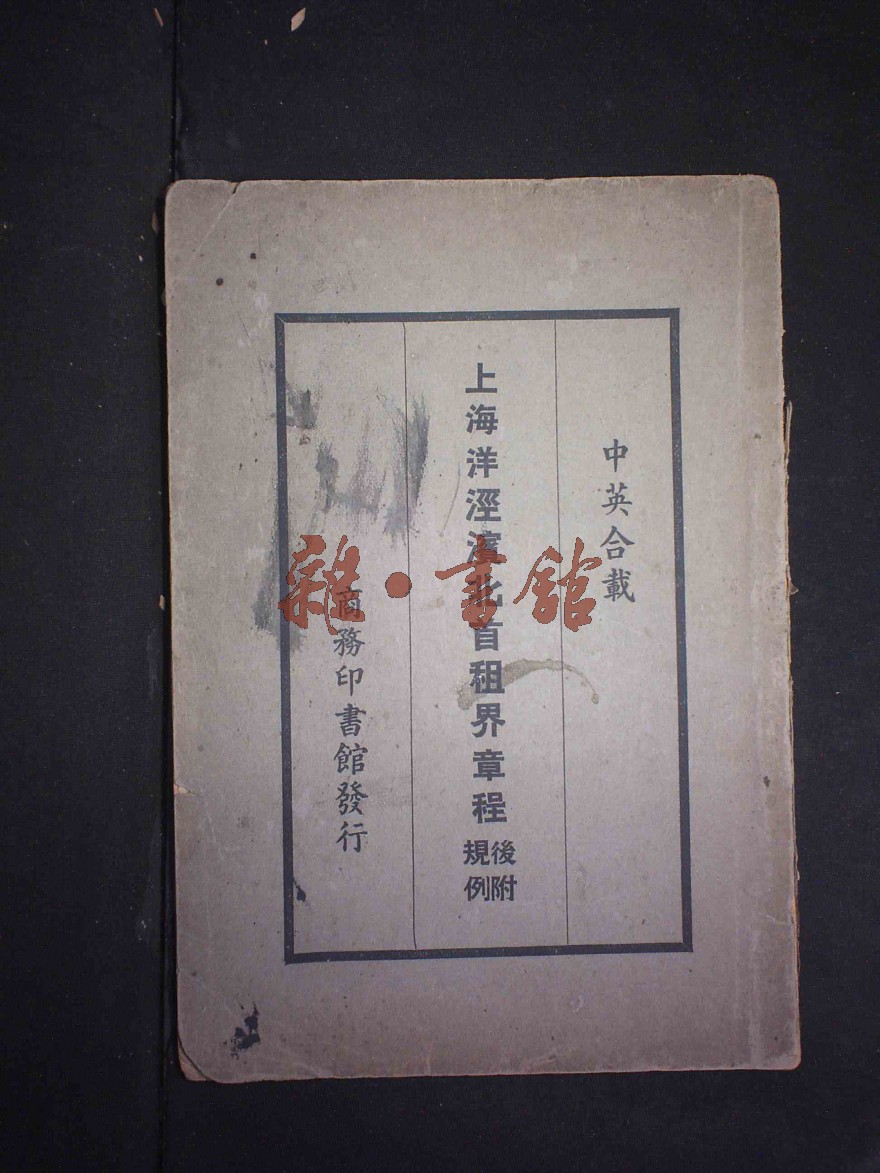 中英合載
上海洋涇濱北首租界章程
後附
規例
商務印書館發行
雜·書館